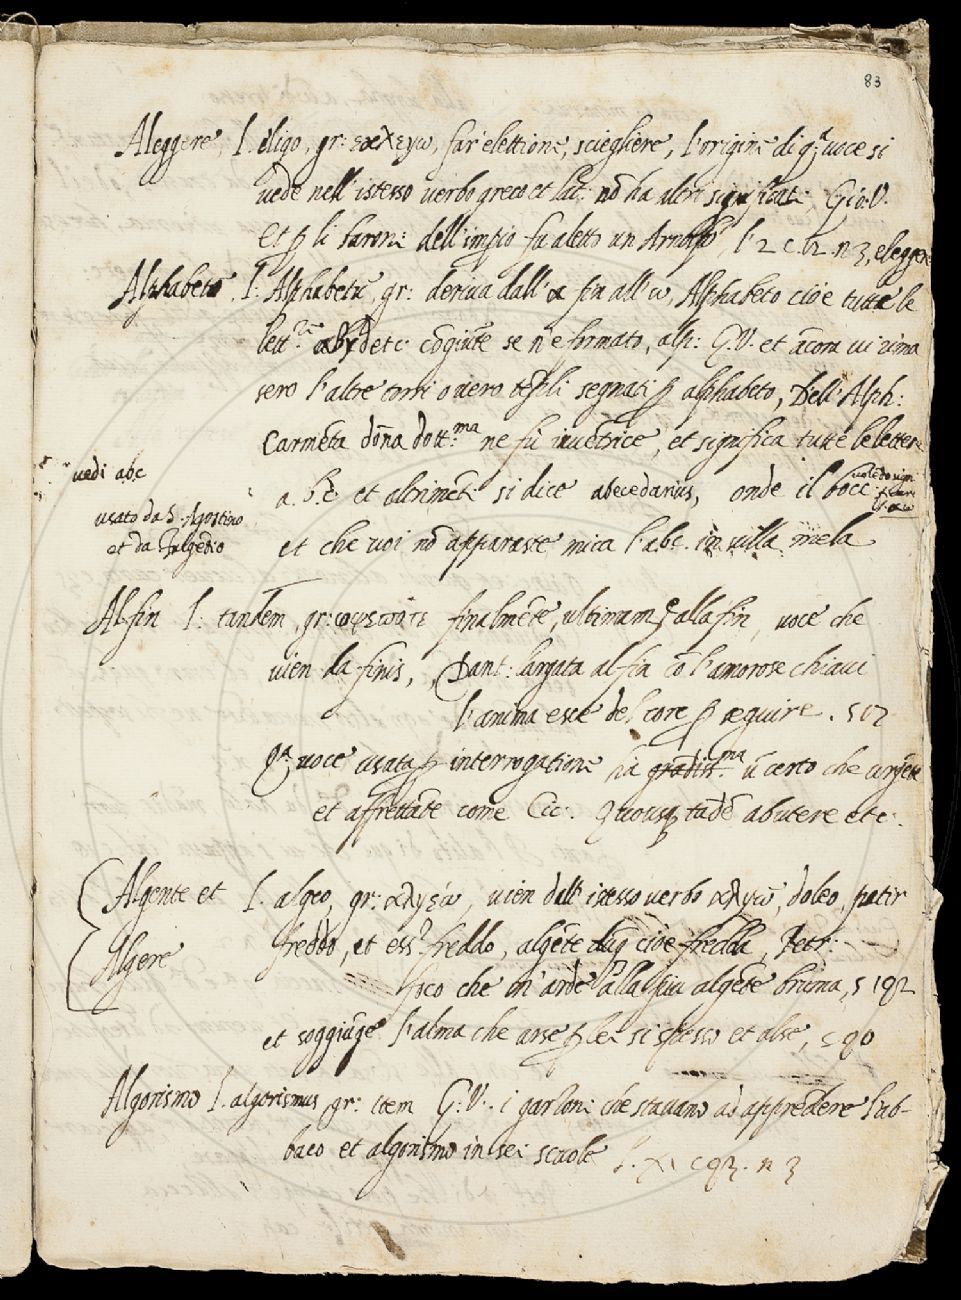 83
Aleggere, l. eligo, gr: εκλεγω, far elettione, sciegliere, l'origine di q.ª voce si
vede nell'istesso verbo greco et lat: nō ha altri significati: Gio: V.
et ꝑ li Baroni dell'impio fu aletto un Arnolfo l 2 c. 2 n 3, eleggere
Alphabeto, l: Alphabetū, gr: deriva dall'α fin all'ω, Alphabeto cioè tutte le
lett.re αβγδ etc. cōgiūte se n'è formato, alp: G. V. et ācora vi rima
sero l'altre torri overo tēpli segnati ꝑ alphabeto, Dell'Alph:
Carmēta dōna dott.ma ne fu invētrice, et significa tutte le lettere
vedi abc
a. b. c. et altrimēti si dice abecedarius, onde il bocc:
usato da S. Agostino
et da Fulgētio
et che voi nō apparaste mica l'abc in sulla mela
Alfin l: tandem, gr: finalmēte, ultimam.e alla fin, voce che
vien da finis, Dant: largata al fin cō l'amorose chiavi
l'anima esce del core ꝑ seguire. s 17
q.ª voce usata ꝑ interrogatione ha gradiss.ma ū certo che urgēte
et affrettāte come Cic: Quousq tādē abutere etc:
Algente et
Algere
l. algeo, gr: αλγέω, vien dall'istesso verbo αλγω, doleo, patir
freddo, et ess.r freddo, algēte duq cioè fredda, Petr:
foco che m'arde alla più algēte bruma, s 192
et soggiūge l'alma che arse ꝑ lei si spesso et alse, c 90
Algorismo l. algorismus, gr: item G: V. i garzoni che stavano ad apprēdere l'ab-
baco et algorismo in sei scuole l. XI c 93. n 3